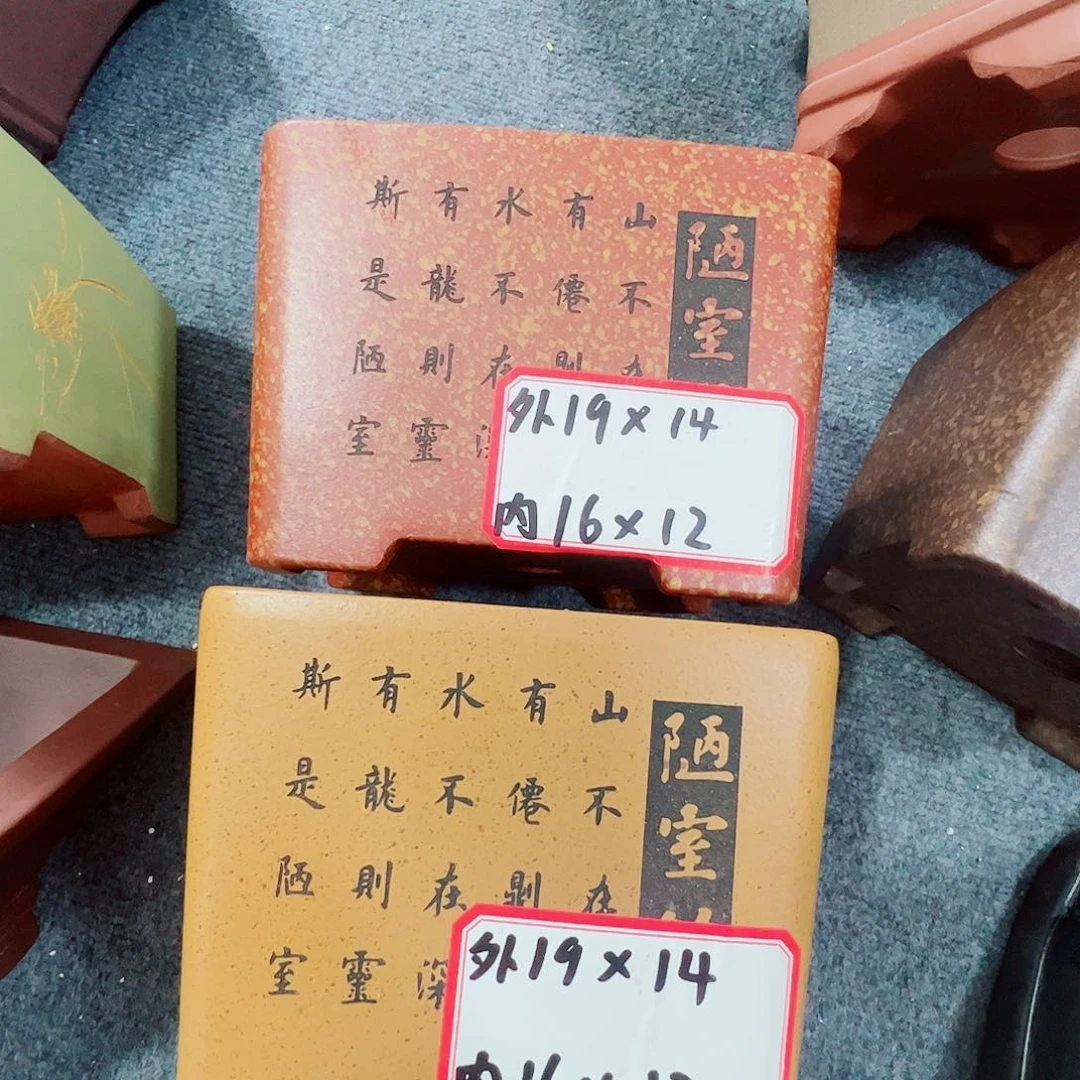 陋室
山不
有僊則
水不在
有龍則靈
斯是陋室
外19×14
内16×12
陋室
山不在
有僊則
水不在深
有龍則靈
斯是陋室
外19×14
内16×12